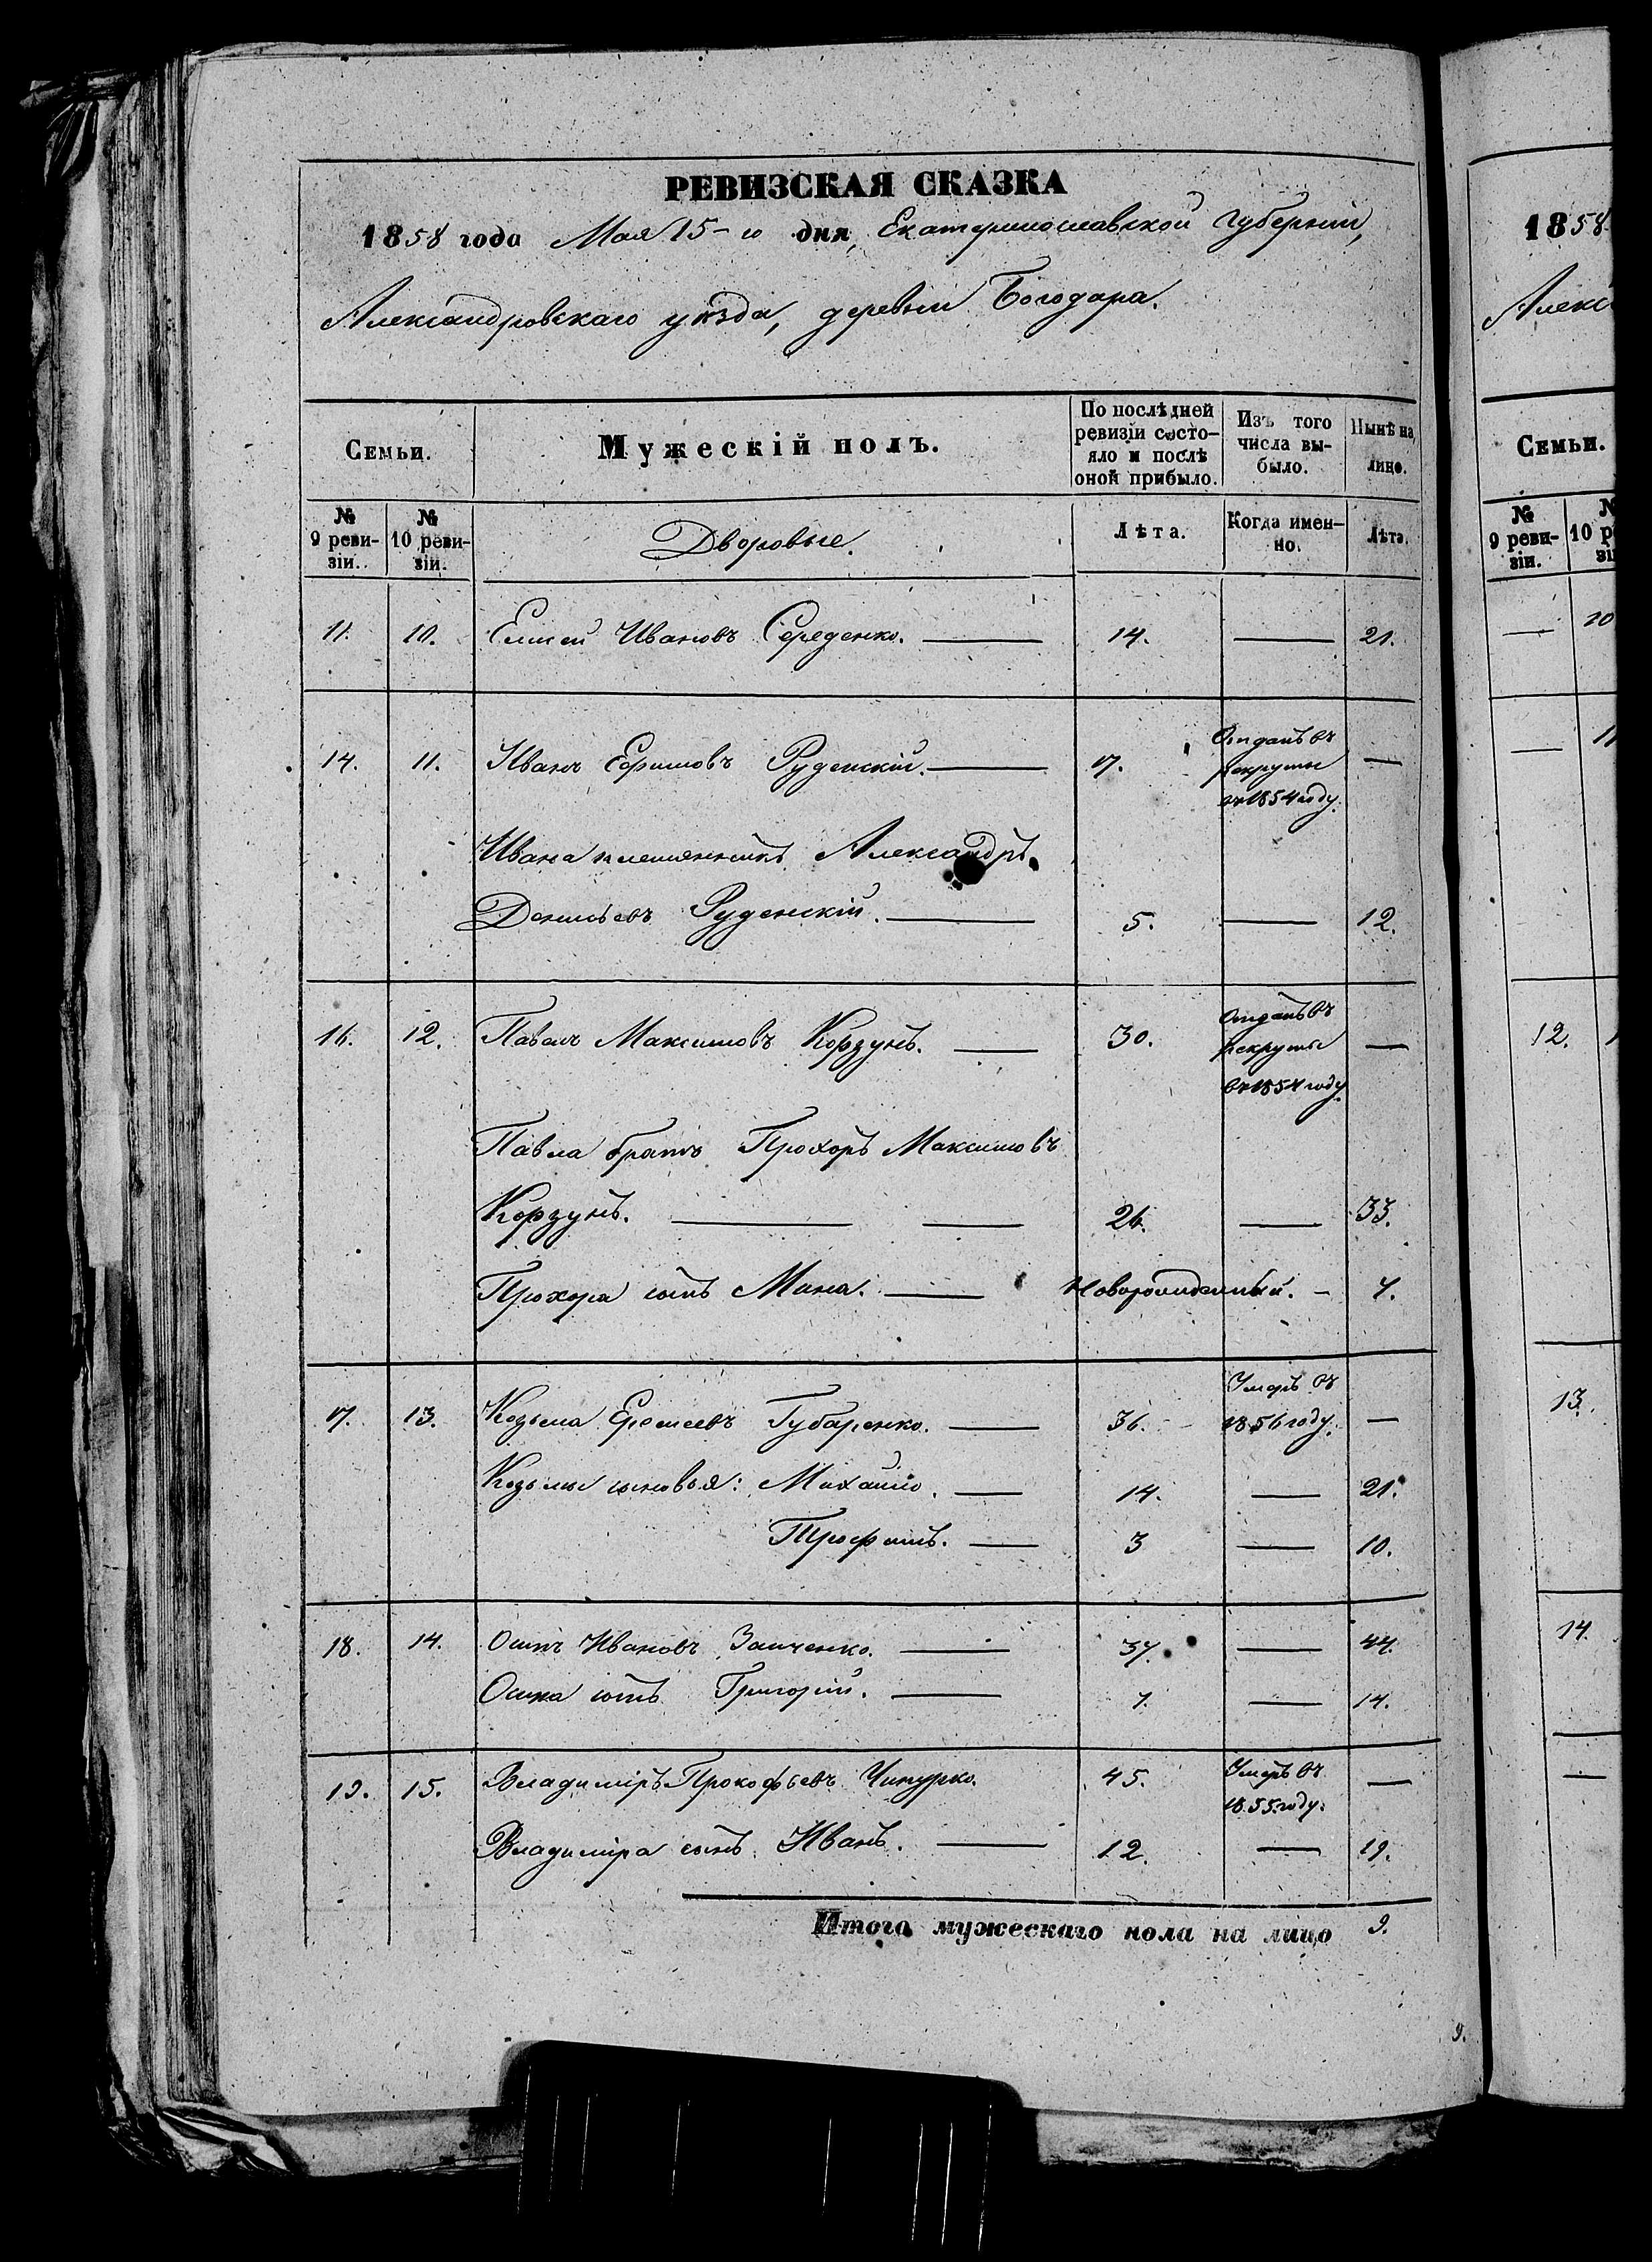 РЕВИЗСКАЯ СКАЗКА
1858 года Мая 15-го дня, Екатеринославской Губерніи,
Александровскаго уѣзда, деревни Богодара.
Семьи. Мужескій полъ. По послѣдней ревизіи состо- яло и послѣ оной прибыло. Изъ того числа вы- было. Нынѣ на лицо.
№ 9 реви- зіи. № 10 реви- зіи. Дворовые. Лѣта. Когда имен- но. Лѣта.
11. 10. Елисей Ивановъ Середенко. — 14. — 21.
14. 11. Иванъ Ефимовъ Руденскій. — 17. Отданъ въ рекруты въ 1854 году. —
Ивана племянникъ Александръ
Денисьевъ Руденскій. — 5. — 12.
16. 12. Павелъ Максимовъ Корзунъ. — 30. Отданъ въ рекруты въ 1854 году —
Павла братъ Прохоръ Максимовъ
Корзунъ. — — 26. — 33.
Прохора сынъ Мина. — Новорожденный. –
17. 13. Козьма Еремеевъ Губаренко. — 36. Умеръ въ 1856 году. —
Козьмы сыновья: Михайло. — 14. — 21.
Трофимъ. — 3 — 10.
18. 14. Осипъ Ивановъ Заиченко. — 37. — 44.
Осипа сынъ Григорій. — 7. — 14.
19. 15. Владиміръ Прокофьевъ 45. Умеръ въ 1855 году. —
Владиміра сынъ Иванъ. — 12. — 19.
Итого мужескаго пола на лицо 9.
9.
1858
Алекс
Семьи.
№ 9 реви- зіи. № 10 ре зі
— 10
— 11
12.
13.
14.
—